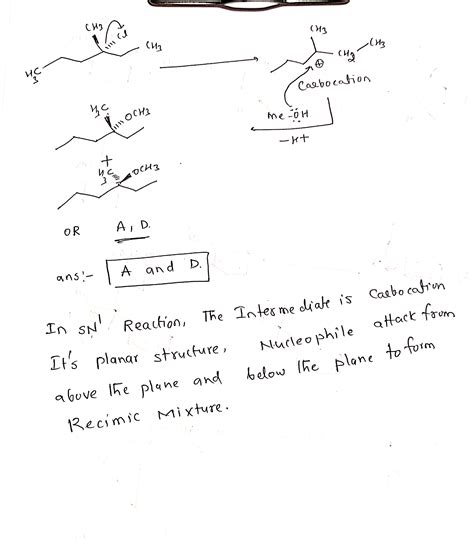 CH3
Cl
CH3
H3C
CH3
CH2
CH3
⊕
Carbocation
Me-ÖH
-H+
H3C
OCH3
+
H3C
OCH3
OR A, D.
ans:- A and D.
In SN1 Reaction, The Intermediate is Carbocation
It's planar structure, Nucleophile attack from
above the plane and below the plane to form
Recimic Mixture.